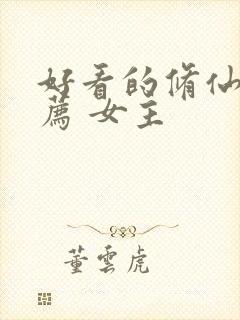 好看的脩仙
薦 女主
董雲虎